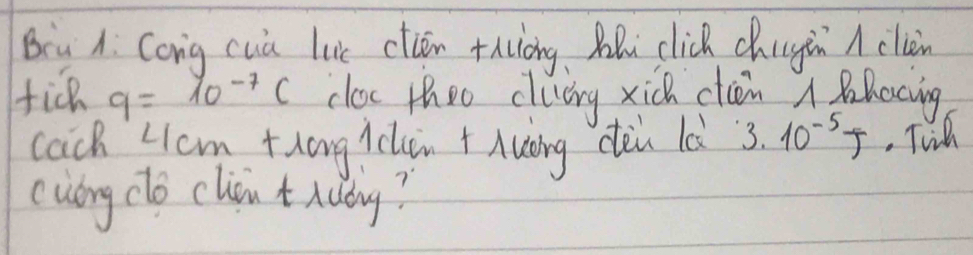 Bài 1: Công của lực điện trường khi dịch chuyển 1 điện
tích q = 10⁻⁷ C dọc theo đường xích điện 1 khoảng
cách 4cm trong 1 điện trường đều là 3.10⁻⁵ J. Tính
cường độ điện trường?